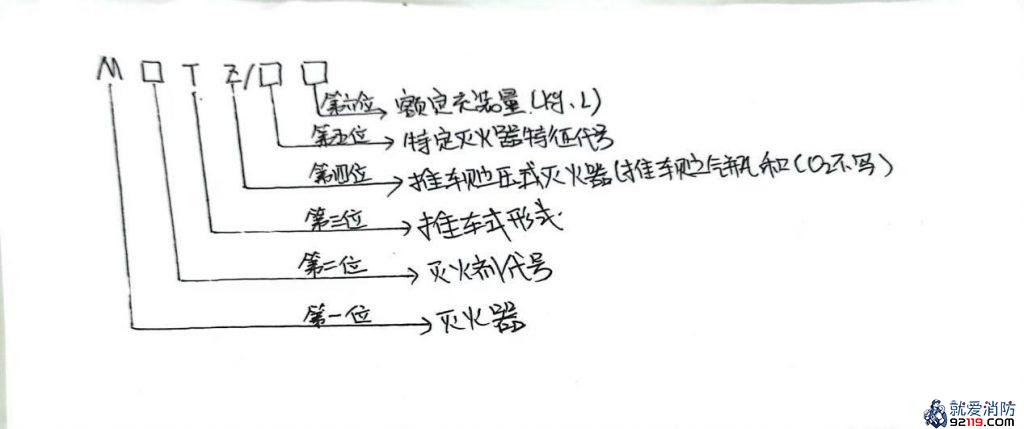 M □ T Z/□ □
第六位 额定充装量(kg、L)
第五位 特定灭火器特征代号
第四位 推车贮压式灭火器(推车贮气瓶和CO2不写)
第三位 推车式形式
第二位 灭火剂代号
第一位 灭火器
就爱消防
92119.com